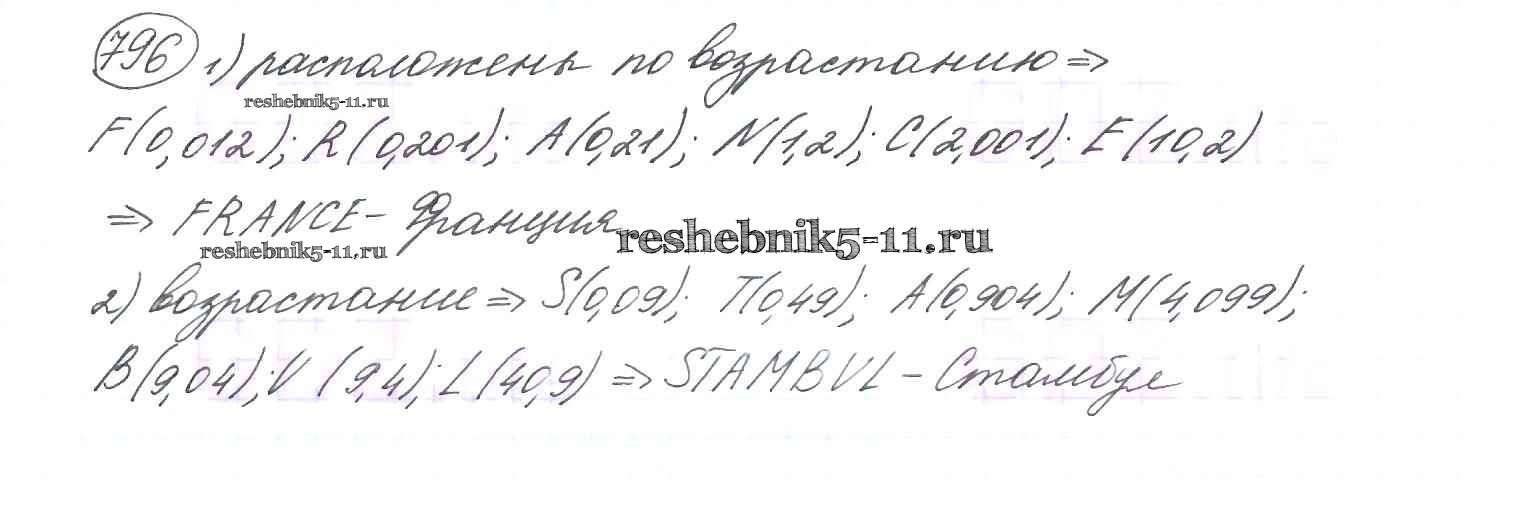 796 1) расположены по возрастанию ⇒
reshebnik5-11.ru
F(0,012); R(0,201); A(0,21); N(1,2); C(2,001); E(10,2)
⇒ FRANCE - Франция
reshebnik5-11.ru
reshebnik5-11.ru
2) возрастание ⇒ S(0,09); T(0,49); A(0,904); M(4,099);
B(9,04); V(9,4); L(40,9) ⇒ STAMBVL - Стамбул